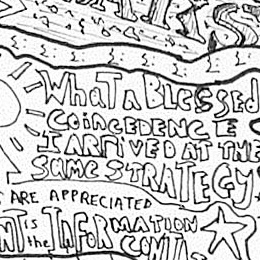 WHaT A BLeSSed
COiNCEDENCE
I ARRIVED AT THE
SAME STRATEGY
ARE APPRECIATED
is the INFORMATION